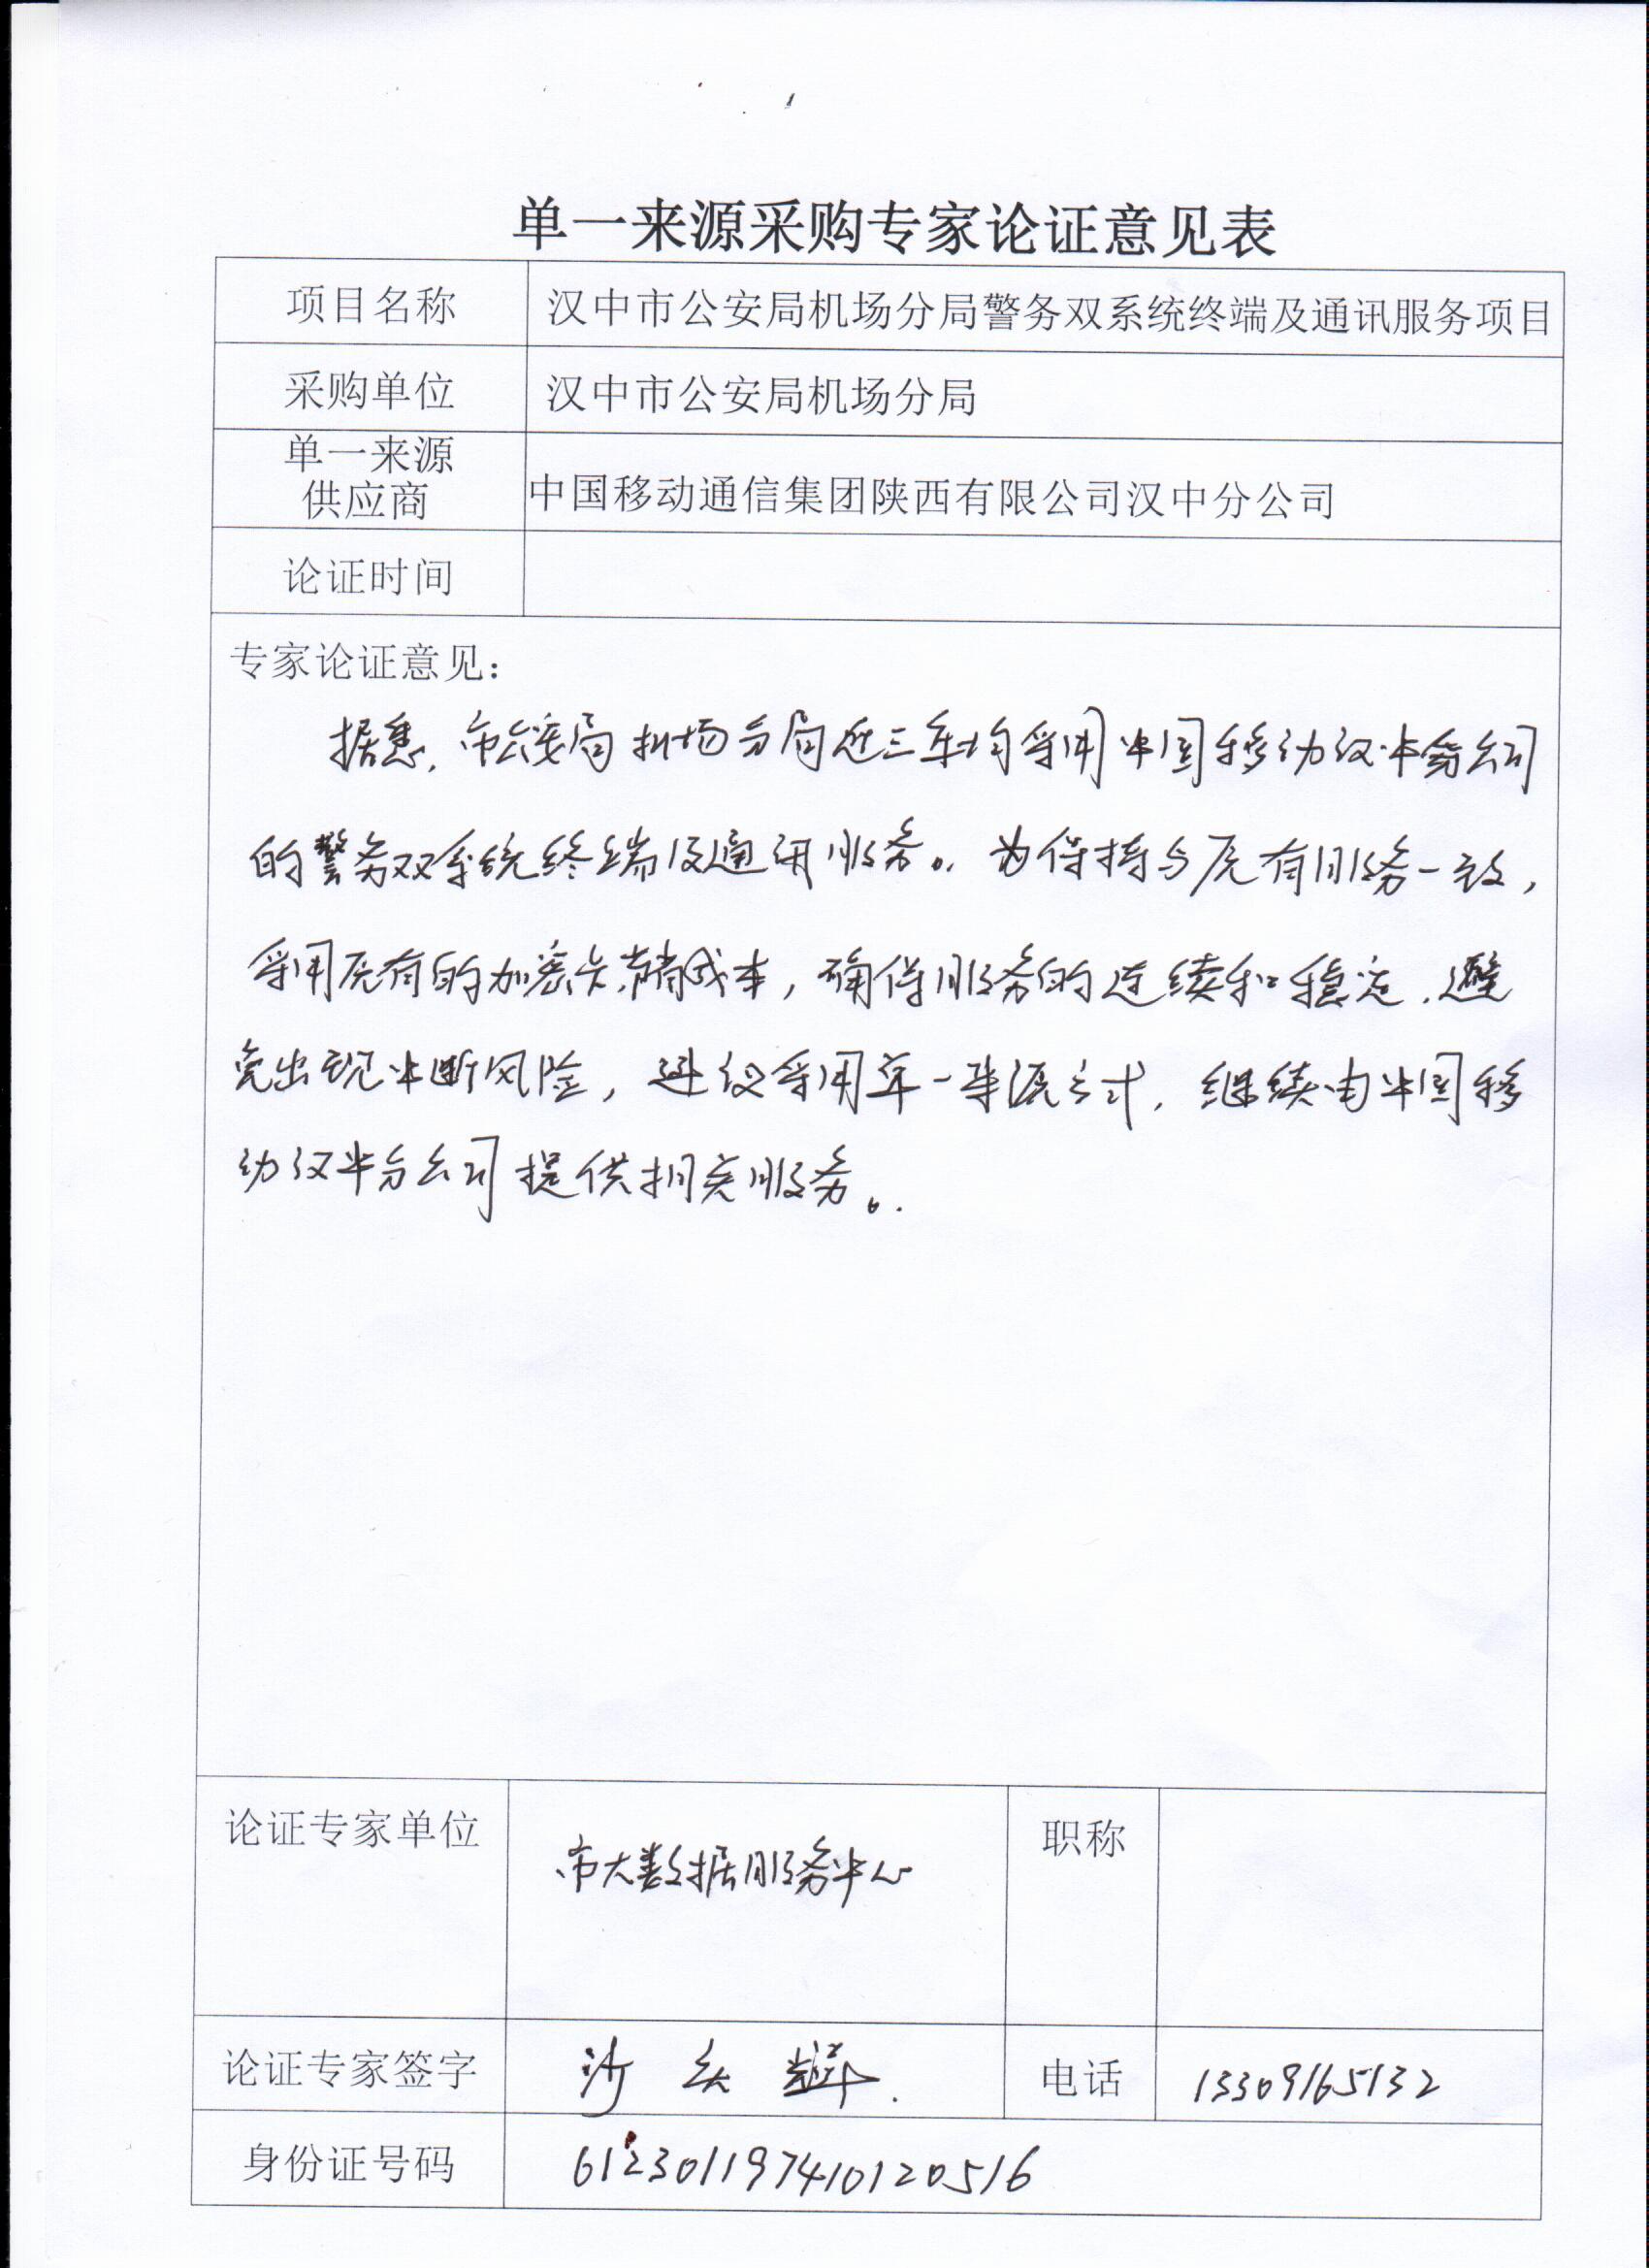 单一来源采购专家论证意见表
项目名称 汉中市公安局机场分局警务双系统终端及通讯服务项目
采购单位 汉中市公安局机场分局
单一来源
供应商 中国移动通信集团陕西有限公司汉中分公司
论证时间
专家论证意见：
据悉，市公安局机场分局近三年均采用中国移动汉中分公司
的警务双系统终端及通讯服务。为保持与原有服务一致，
采用原有的加密卡，节省成本，确保服务的连续和稳定，避
免出现中断风险，建议采用单一来源方式，继续由中国移
动汉中分公司提供相关服务。
论证专家单位 市大数据服务中心 职称
论证专家签字 沙 电话 13309165132
身份证号码 612301197410120516